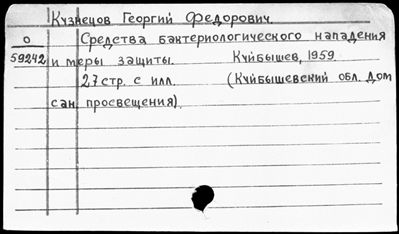 Кузнецов Георгий Федорович.
О Средства бактериологического нападения
59242 и меры защиты. Куйбышев, 1959
27 стр. с илл. (Куйбышевский обл. Дом
сан. просвещения).